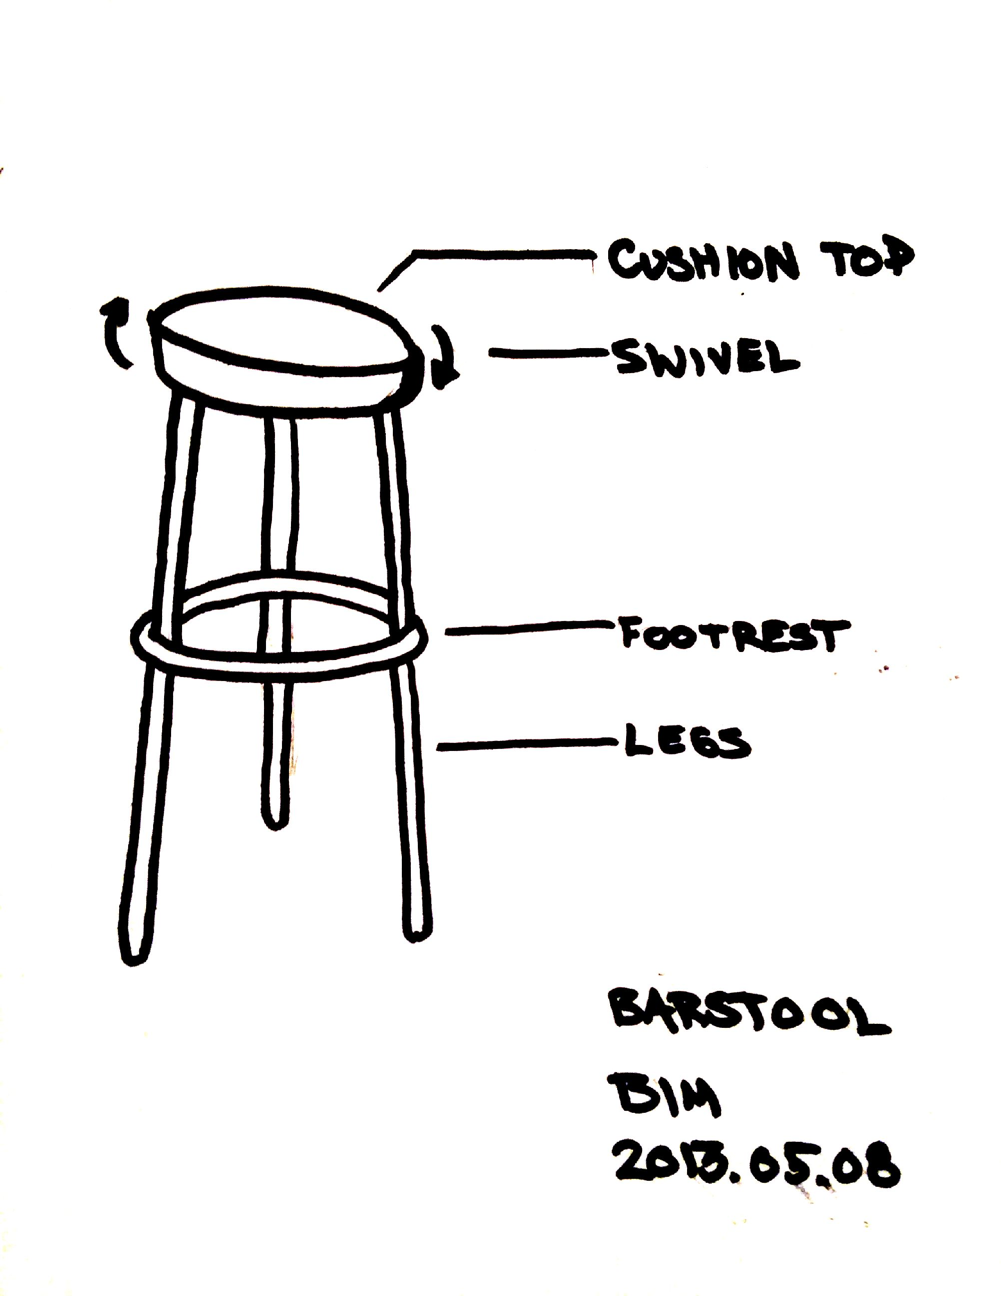 CUSHION TOP
SWIVEL
FOOTREST
LEGS
BARSTOOL
BIM
2013.05.08